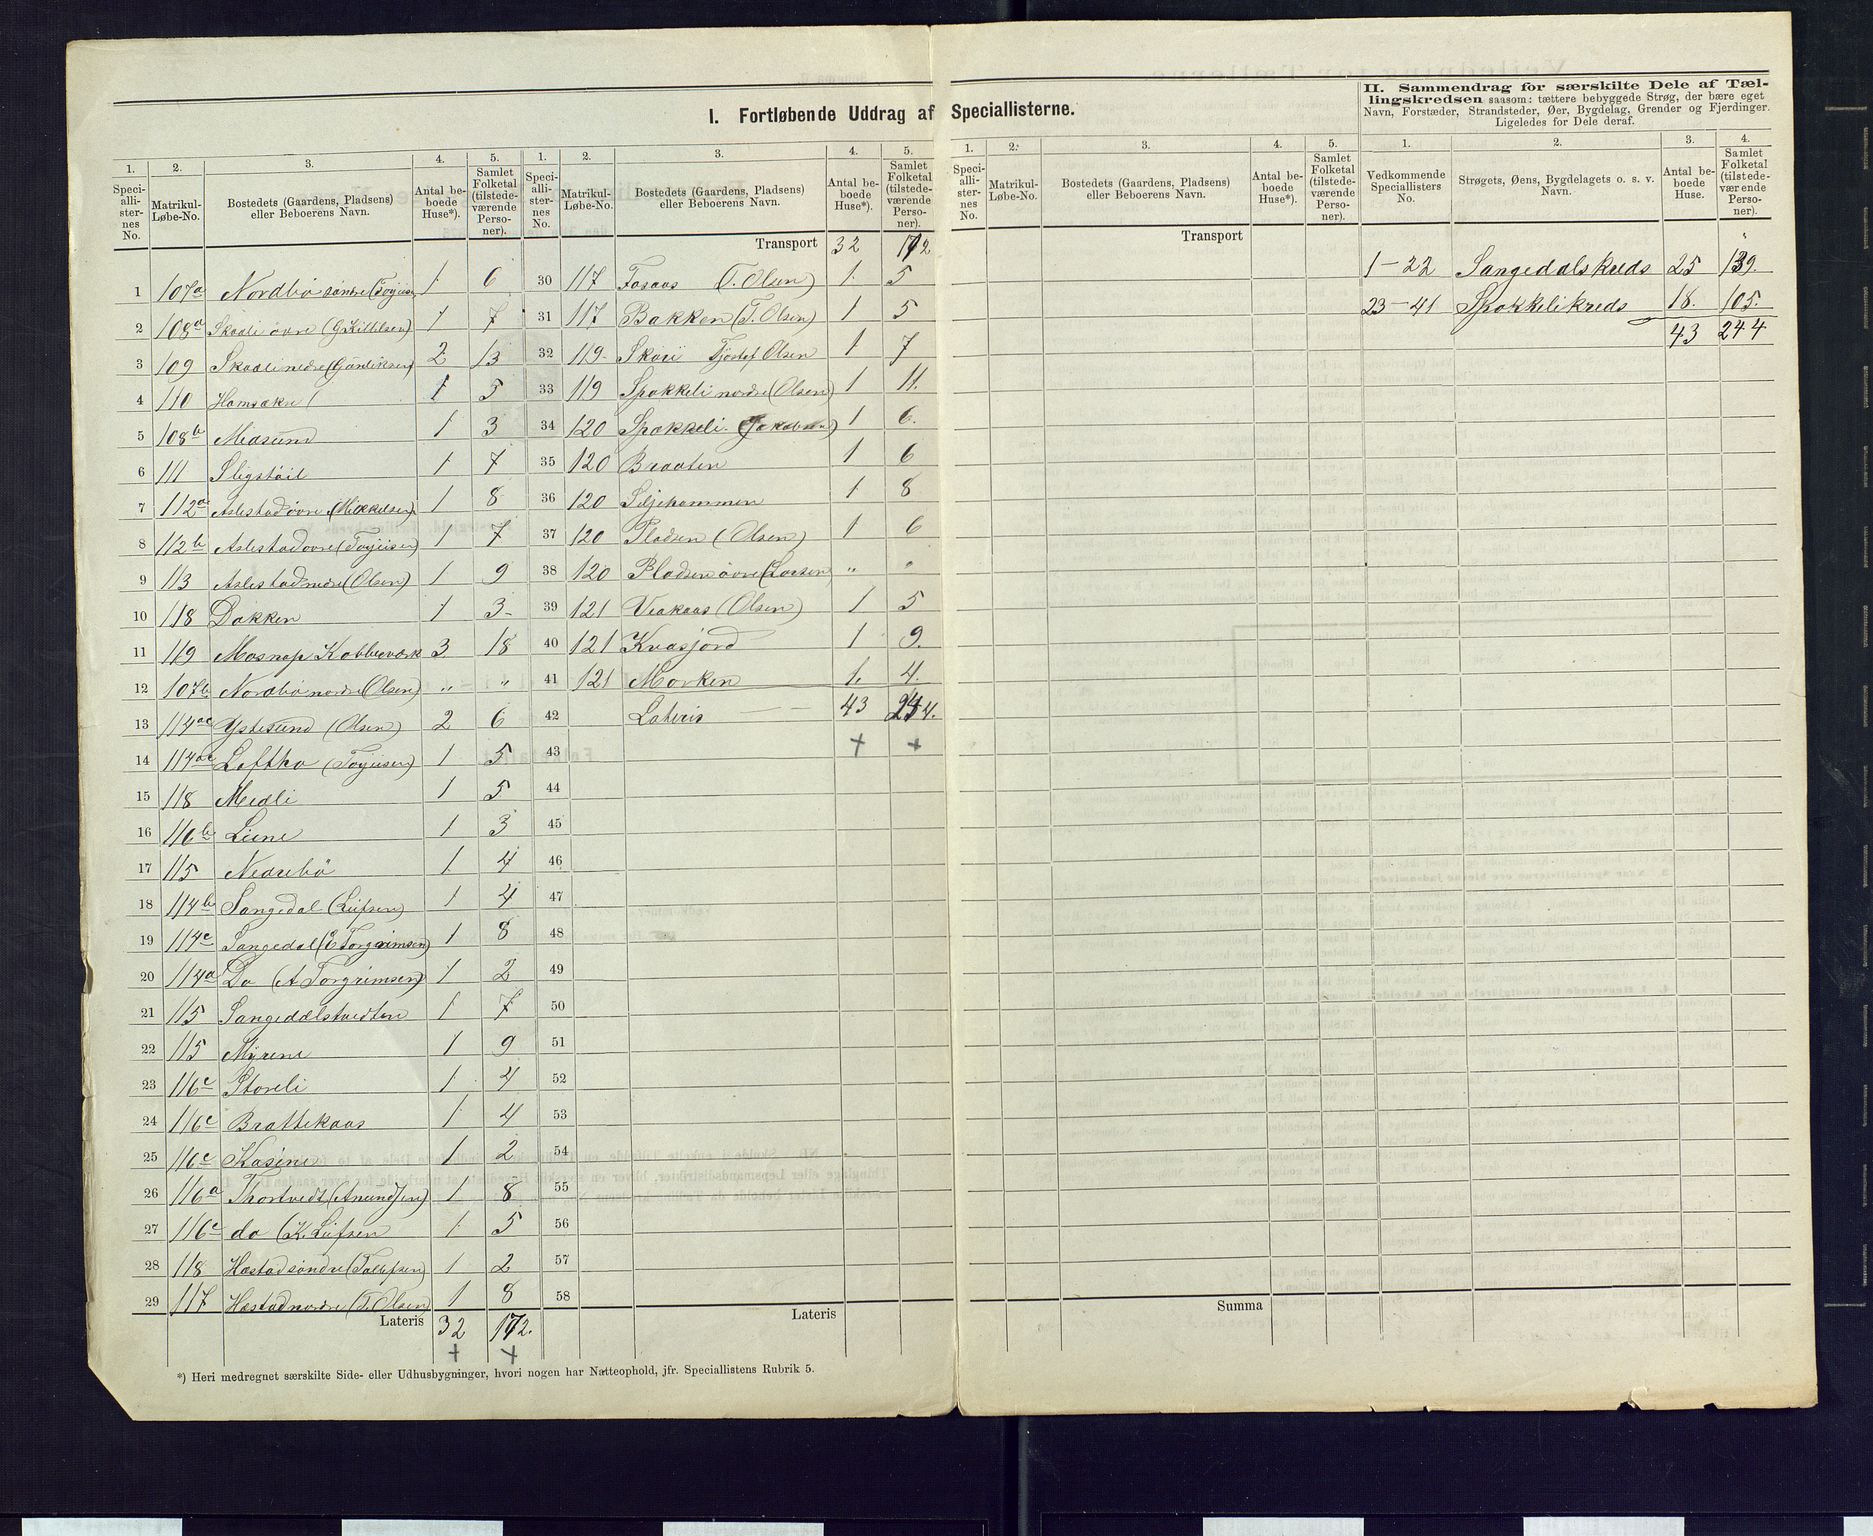 I. Fortløbende Uddrag af Speciallisterne.
II. Sammendrag for særskilte Dele af Tæl-
lingskredsen saasom: tættere bebyggede Strøg, der bære eget
Navn, Forstæder, Strandsteder, Øer, Bygdelag, Grender og Fjerdinger.
Ligeledes for Dele deraf.
1. 2. 3. 4. 5.
Speciallisternes No. Matrikul-Løbe-No. Bostedets (Gaardens, Pladsens) eller Beboerens Navn. Antal beboede Huse*). Samlet Folketal (tilstedeværende Personer).
1 107a Nordbö söndre (Tojusen 1 6
2 108a Skadli övre (GKittilsen) 1 7
3 109 Skadli nedre (Gunliksen) 2 13
4 110 Hamsakre 1 5
5 108b Midsund 1 3
6 111 Sligstöil 1 7
7 112a Aslestad övre (Mikkelsen) 1 8
8 112b Aslestad övre (Tojusen) 1 7
9 113 Aslestad nedre (Olsen) 1 9
10 118 Dakken 1 3
11 119 Mosnap Kobberværk 3 18
12 107b Nordbö nordre (Olsen) " "
13 114ac Ystesund (Olsen) 2 6
14 114ac Loftho (Tojusen) 1 5
15 118 Midli 1 5
16 116b Liene 1 3
17 115 Nedrebö 1 4
18 114b Sangedal (Leifsen) 1 4
19 114c Sangedal (E Torgrimsen) 1 8
20 114a Do (A Torgrimsen) 1 2
21 115 Sangedalstvedten 1 7
22 115 Myrene 1 9
23 116c Storeli 1 4
24 116c Brattekaas 1 4
25 116c Kasine 1 2
26 116a Thortvedt (Amundsen) 1 8
27 116c do (K. Leifsen 1 5
28 118 Hastad söndre (Tallefsen) 1 2
29 117 Hastad nordre (T. Olsen) 1 8
Lateris 32 172.
*) Heri medregnet særskilte Side- eller Udhusbygninger, hvori nogen har Natteophold, jfr. Speciallistens Rubrik 5.
1. 2. 3. 4. 5.
Speciallisternes No. Matrikul-Løbe-No. Bostedets (Gaardens, Pladsens) eller Beboerens Navn. Antal beboede Huse*). Samlet Folketal (tilstedeværende Personer).
Transport 32 172
30 117 Fosaas (T. Olsen) 1 5
31 117 Bakken (T. Olsen) 1 5
32 119 Skori Tjostef Olsen 1 7
33 119 Spokkeli nordre (Olsen) 1 11.
34 120 Spokkeli (Jakobsen) 1 6.
35 120 Braaten 1 6
36 120 Seljehommen 1 8
37 120 Pladsen (Olsen) 1 6
38 120 Pladsen övre (Larsen " "
39 121 Veakaas (Olsen) 1 5
40 121 Kvasjord 1 9.
41 121 Morken 1. 4.
42 Lateris 43 244.
43
44
45
46
47
48
49
50
51
52
53
54
55
56
57
58
Lateris
1. 2. 3. 4. 5.
Speciallisternes No. Matrikul-Løbe-No. Bostedets (Gaardens, Pladsens) eller Beboerens Navn. Antal beboede Huse*). Samlet Folketal (tilstedeværende Personer).
Transport
Summa
1. 2. 3. 4.
Vedkommende Speciallisters No. Strøgets, Øens, Bygdelagets o. s. v. Navn. Antal beboede Huse. Samlet Folketal (tilstedeværende Personer).
1-22 Sangedalskreds 25 139.
23-41 Spokkelikreds 18. 105.
43 244